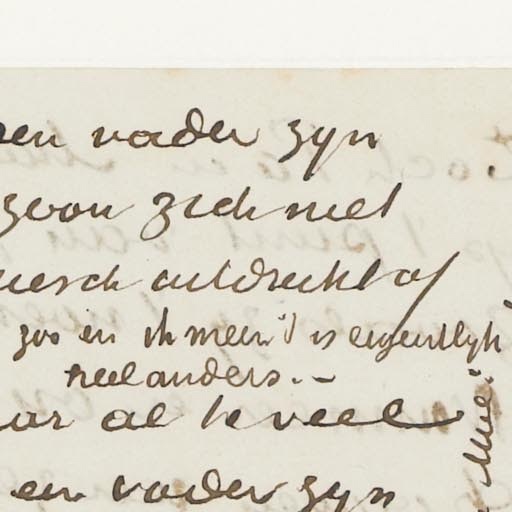 en vader zyn
zoon zich niet
uitdrukt of
zoo en ik meen 't is eigentlyk
heel anders. -
ar al te veel
en vader zyn